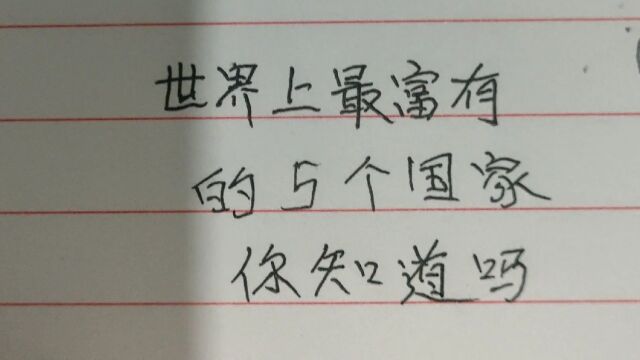 世界上最富有
的5个国家
你知道吗